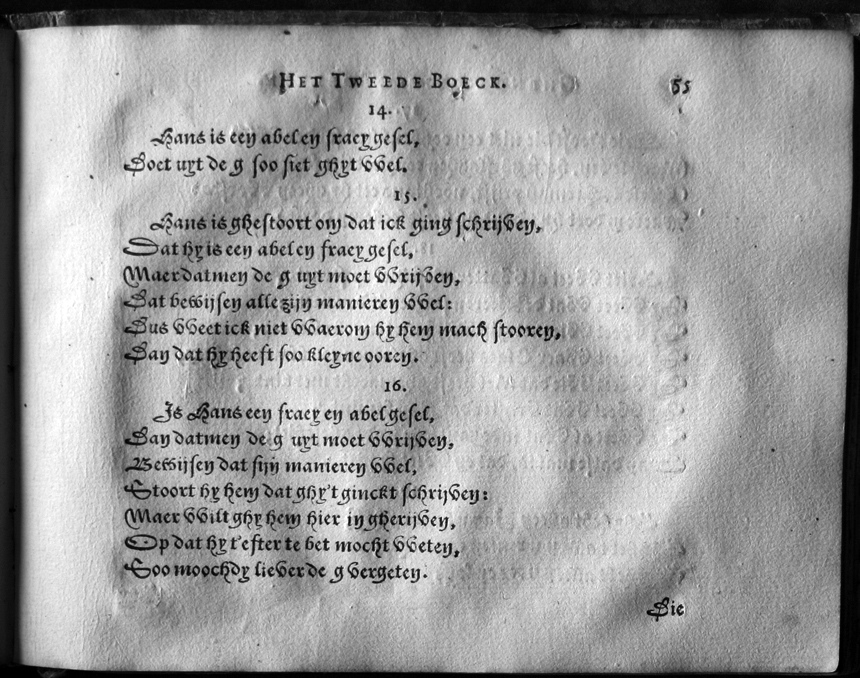 HET TWEEDE BOECK. 55
14.
Hans is een abel en fraey gesel,
Doet uyt de g soo siet ghyt wel.
15.
Hans is ghestoort om dat ick ging schrijven,
Dat hy is een abel en fraey gesel,
Maer datmen de g uyt moet wrijven,
Dat bewijsen alle zijn manieren wel:
Dus weet ick niet waerom hy hem mach stooren,
Dan dat hy heeft soo kleyne ooren.
16.
Is Hans een fraey en abel gesel,
Dan datmen de g uyt moet wrijven,
Bewijsen dat sijn manieren wel,
Stoort hy hem dat ghy't ginckt schrijven:
Maer wilt ghy hem hier in gherijven,
Op dat hy t'efter te bet mocht weten,
Soo moochdy liever de g vergeten.
Die